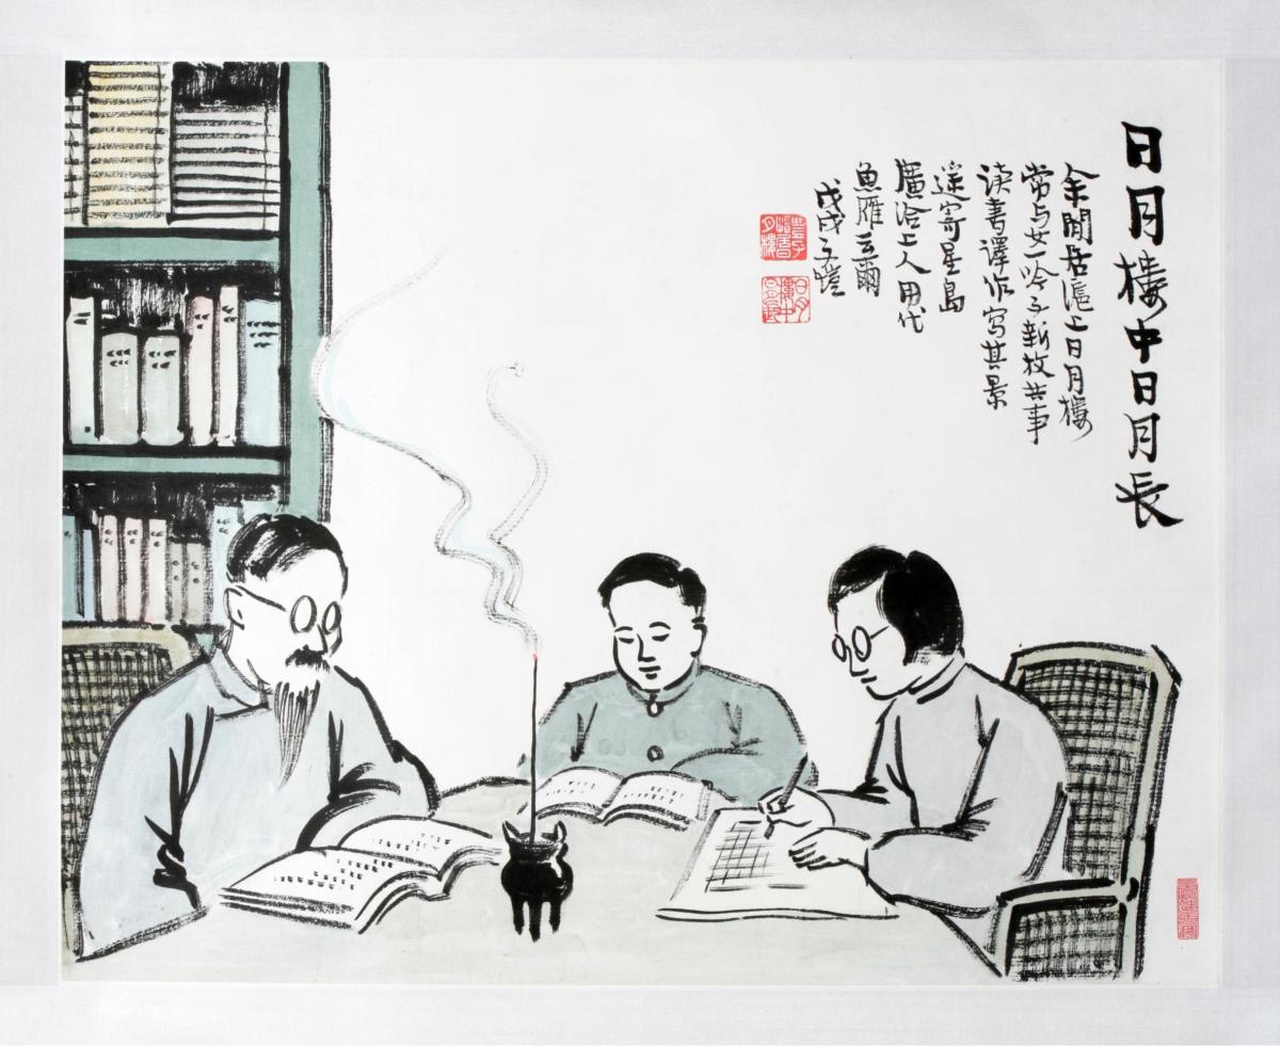 日月楼中日月長
余閒居滬上日月楼
常与女一吟子新枚共事
读書譯作写其景
遥寄星島
廣洽上人用代
魚雁云爾
戊戌子愷